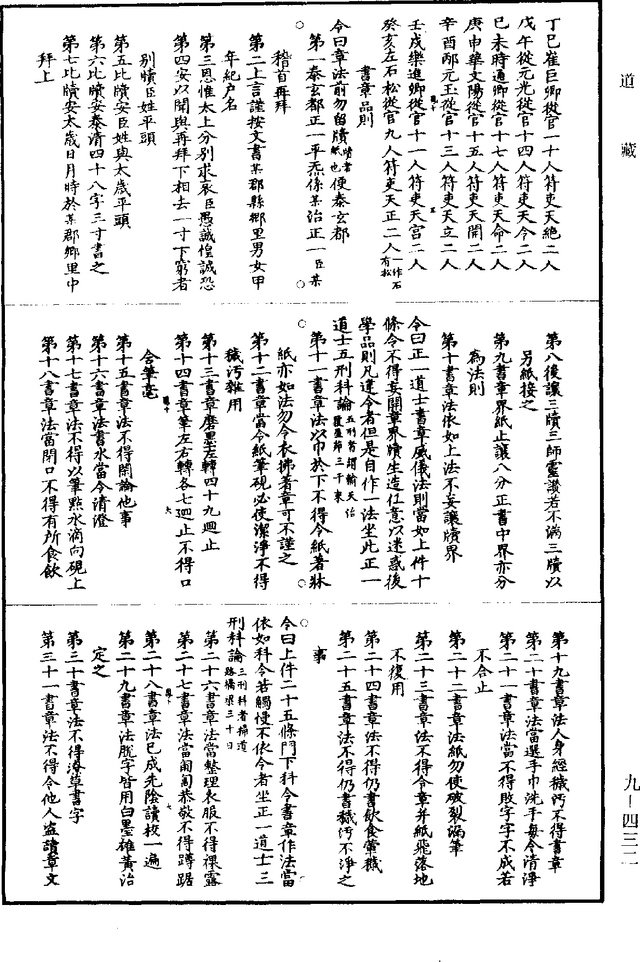 道藏
丁巳崔巨卿從官一十人符吏天絕二人
戊午從元光從官十四人符吏天今二人
巳未時通卿從官十七人符吏天命二人
庚申華文陽從官十五人符吏天開二人
辛酉邴元玉從官十三人符吏天立二人
壬戌樂進卿從官十一人符吏天宮二人
癸亥左石松從官九人符吏天正二人一作石有松
書章品則
令曰章法前勿留牘
皆素紙也
便泰玄都
第一泰玄都正一平炁係某治正一臣某
稽首再拜
第二上言謹按文書某郡縣鄉里男女甲
年紀戶名
第三恩惟太上分別求哀臣愚誠惶誠恐
第四安以聞與再拜下相去一寸下窮者
別牘臣姓平頭
第五比牘安臣姓與太歲平頭
第六比牘安泰清四十八字三寸書之
第七比牘安太歲日月時於某郡鄉里中
拜上
第八後讓三牘三師靈讃若不滿三牘以
另紙接之
第九書章界紙止讓八分正書中界亦分
為法則
第十書章法依如上法不妄讓牘界
令曰正一道士書章威儀法則當如上件十
條令不得妄開章界牘生造任意以迷惑後
學品則凡違令者但是自作一法坐此正一
道士五刑科論
五刑者謂輸天治
覆屋茆三千束
第十一書章法以巾於下不得令紙著牀
紙亦如法勿令衣拂著章可不謹之
第十二書章當令紙筆硯必使潔淨不得
穢污雜用
第十三書章磨墨左轉四十九迴止
第十四書章筆左右轉各七迴止不得口
含筆毫
第十五書章法不得閑論他事
第十六書章法書水當令清澄
第十七書章法不得以筆點水滴向硯上
第十八書章法當閉口不得有所食飲
第十九書章法人身經穢污不得書章
第二十書章法當選手巾洗手每令清淨
第二十一書章法當不得敗字字不成若
不合止
第二十二書章法紙勿使破裂漏筆
第二十三書章法不得令章并紙飛落地
不復用
第二十四書章法不得仍書飲食葷穢
第二十五書章法不得仍書穢污不淨之
事
令曰上件二十五條門下科令書章作法當
依如科令若觸慢不依令者坐正一道士三
刑科論
三刑科者掃道
路橋梁三十日
第二十六書章法當整理衣服不得裸露
第二十七書章法當閑閣恭敬不得蹲踞
第二十八書章法已成先陰讀校一遍
第二十九書章法脫字皆用白墨雄黃治
定之
第三十書章法不得濤草書字
第三十一書章法不得令他人盜讀章文
九-四三二